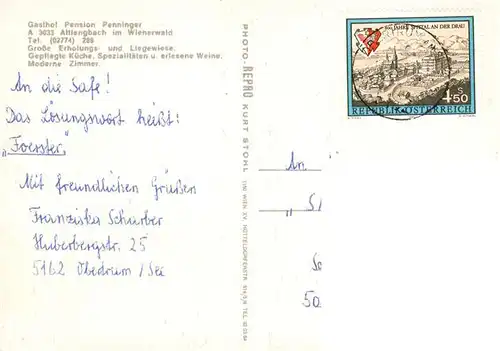 Gasthof Pension Penninger
A 3033 Altlengbach im Wienerwald
Tel. (02774) 289
Große Erholungs- und Liegewiese.
Gepflegte Küche, Spezialitäten u. erlesene Weine.
Moderne Zimmer.
An die Safe!
Das Lösungswort heißt:
„Foerster"
Mit freundlichen Grüßen
Franziska Schurber
Huberbergstr. 25
5162 Obedrum / See
PHOTO-REPRO KURT STOHL
JAHRE SPITTAL AN DER DRAU
S
4.50
REPUBLIK ÖSTERREICH
An
„
50